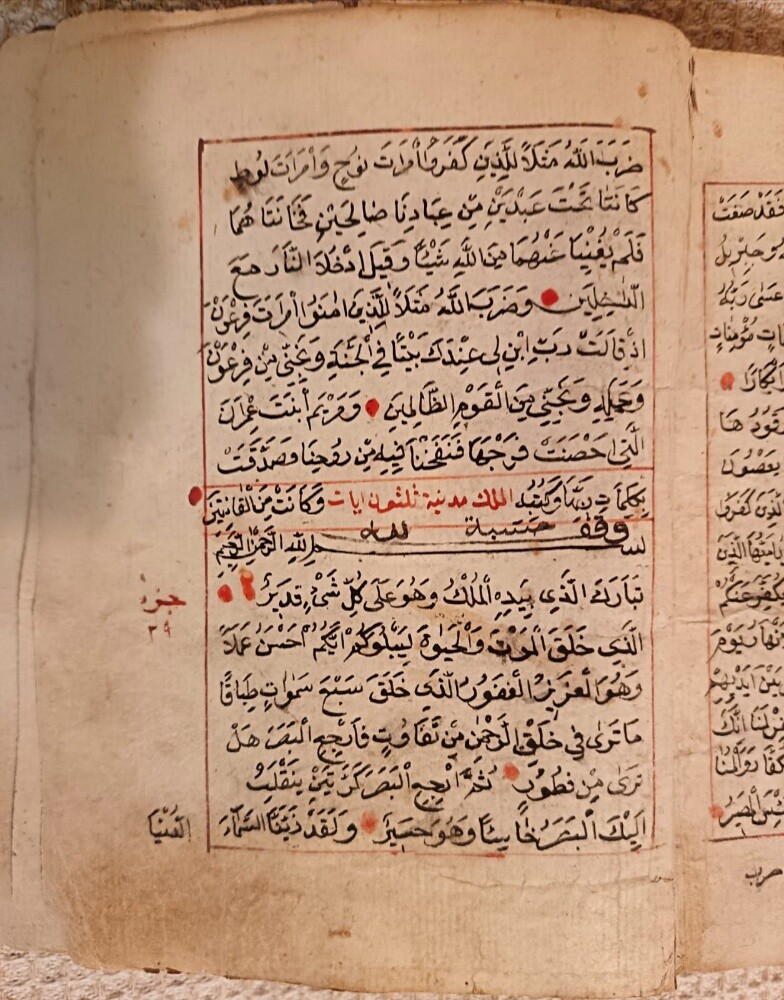 ضَرَبَ اللّٰهُ مَثَلًا لِلَّذِينَ كَفَرُوا امْرَاَتَ نُوحٍ وَامْرَاَتَ لُوطٍ
كَانَتَا تَحْتَ عَبْدَيْنِ مِنْ عِبَادِنَا صَالِحَيْنِ فَخَانَتَا هُمَا
فَلَمْ يُغْنِيَا عَنْهُمَا مِنَ اللّٰهِ شَيْئًا وَقِيلَ ادْخُلَا النَّارَ مَعَ
الدَّاخِلِينَ وَضَرَبَ اللّٰهُ مَثَلًا لِلَّذِينَ اٰمَنُوا امْرَاَتَ فِرْعَوْنَ
اِذْ قَالَتْ رَبِّ ابْنِ لِى عِنْدَكَ بَيْتًا فِي الْجَنَّةِ وَنَجِّنِي مِنْ فِرْعَوْنَ
وَعَمَلِهِ وَنَجِّنِي مِنَ الْقَوْمِ الظَّالِمِينَ وَمَرْيَمَ ابْنَتَ عِمْرَانَ
الَّتِى اَحْصَنَتْ فَرْجَهَا فَنَفَخْنَا فِيهِ مِنْ رُوحِنَا وَصَدَّقَتْ
بِكَلِمَاتِ رَبِّهَا وَكُتُبِهِ وَكَانَتْ مِنَ الْقَانِتِينَ
الملك مدنية ثلثون ايات
وقف حسبة لله
بِسْمِ اللهِ الرَّحْمٰنِ الرَّحِيمِ
تَبَارَكَ الَّذِى بِيَدِهِ الْمُلْكُ وَهُوَ عَلَى كُلِّ شَىْءٍ قَدِيرٌ
الَّذِى خَلَقَ الْمَوْتَ وَالْحَيٰوةَ لِيَبْلُوَكُمْ اَيُّكُمْ اَحْسَنُ عَمَلًا
وَهُوَ الْعَزِيزُ الْغَفُورُ الَّذِى خَلَقَ سَبْعَ سَمٰوَاتٍ طِبَاقًا
مَا تَرٰى فِي خَلْقِ الرَّحْمٰنِ مِنْ تَفَاوُتٍ فَارْجِعِ الْبَصَرَ هَلْ
تَرٰى مِنْ فُطُورٍ ثُمَّ ارْجِعِ الْبَصَرَ كَرَّتَيْنِ يَنْقَلِبْ
اِلَيْكَ الْبَصَرُ خَاسِئًا وَهُوَ حَسِيرٌ وَلَقَدْ زَيَّنَّا السَّمَاءَ
الدُّنْيَا
جزء
٢٩
فَقَدْ صَغَتْ
وَجِبْرِيلُ
عَسٰى رَبُّهُ
مُؤْمِنَاتٍ
اَبْكَارًا
وَقُودُهَا
يَعْصُونَ
الَّذِينَ كَفَرُوا
يَا اَيُّهَا الَّذِينَ
يُكَفِّرَ عَنْكُمْ
يَوْمَ
بَيْنَ اَيْدِيهِمْ
لَنَا اِنَّكَ
بِئْسَ الْمَصِيرُ
ضرب